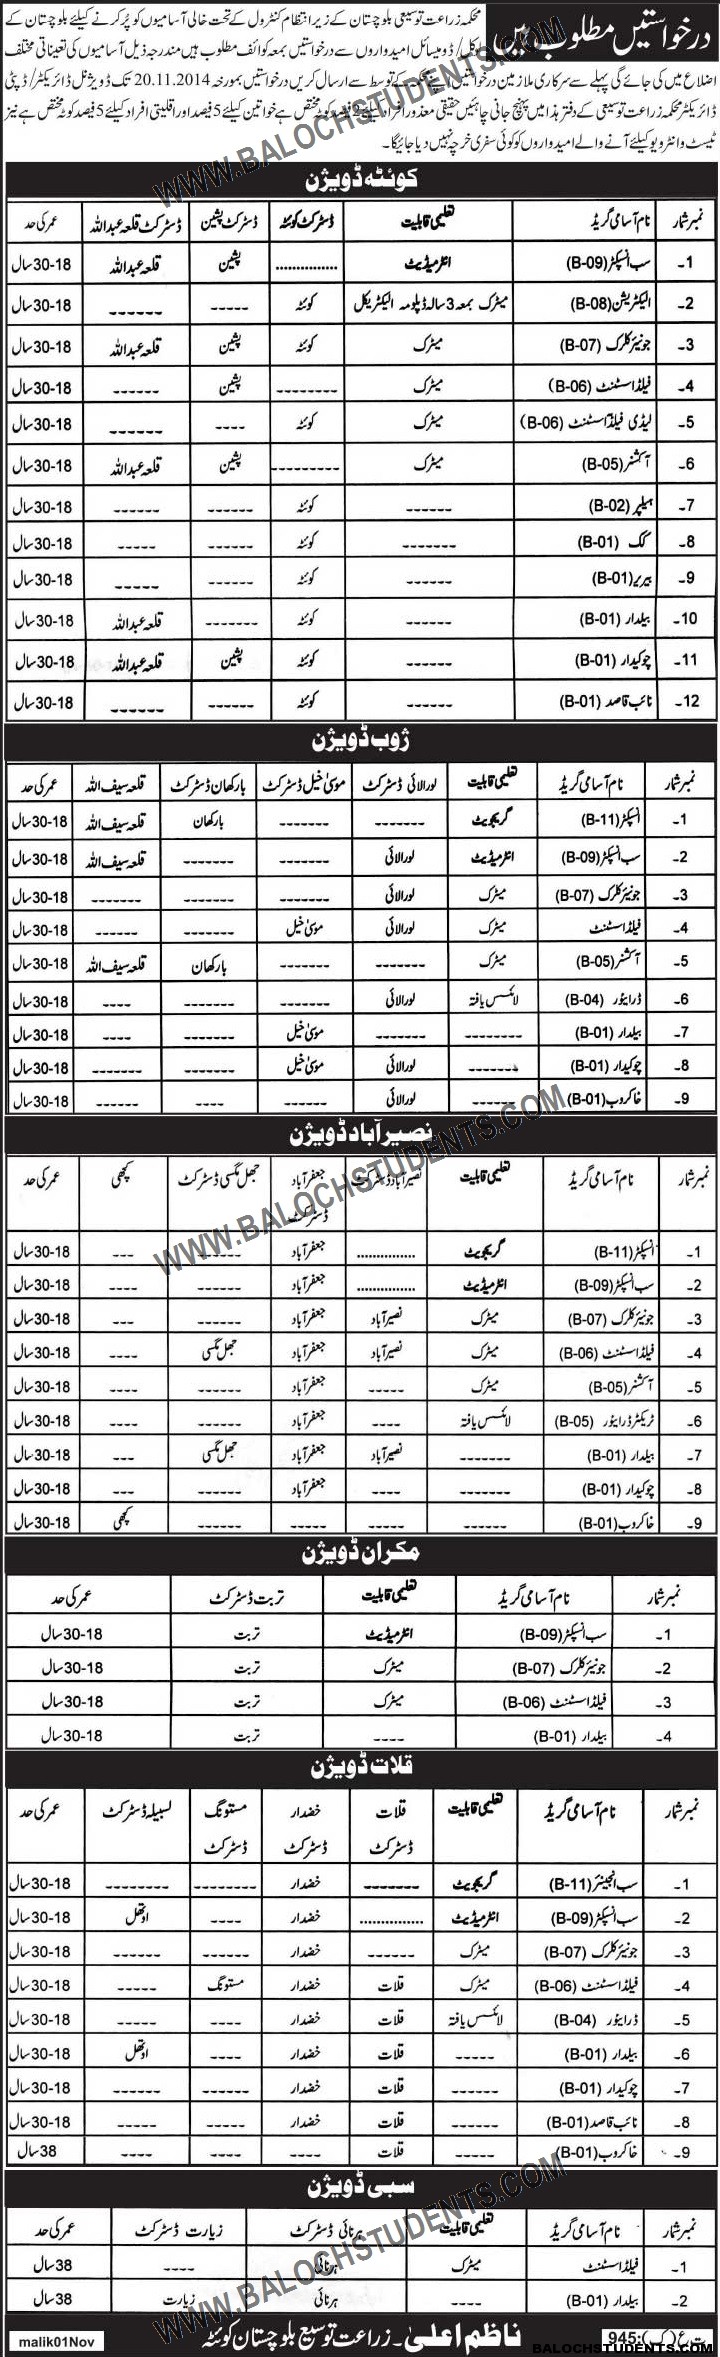 درخواستیں مطلوب ہیں
محکمہ زراعت توسیعی بلوچستان کے زیر انتظام کنٹرول کے تحت خالی آسامیوں کو پُر کرنے کیلئے بلوچستان کے
لوکل / ڈومیسائل امیدواروں سے درخواستیں بمعہ کوائف مطلوب ہیں مندرجہ ذیل آسامیوں کی تعیناتی مختلف
اضلاع میں کی جائے گی پہلے سے سرکاری ملازمین درخواستیں اپنے محکمہ کے توسط سے ارسال کریں درخواستیں بمورخہ 20.11.2014 تک ڈویژنل ڈائریکٹر / ڈپٹی
ڈائریکٹر محکمہ زراعت توسیعی کے دفتر ہذا میں پہنچ جانی چاہئیں حقیقی معذور افراد کیلئے 2 فیصد کوٹہ مختص ہے خواتین کیلئے 5 فیصد اور اقلیتی افراد کیلئے 5 فیصد کوٹہ مختص ہے نیز
ٹیسٹ و انٹرویو کیلئے آنے والے امیدواروں کو کوئی سفری خرچہ نہیں دیا جائیگا۔
WWW.BALOCHSTUDENTS.COM
کوئٹہ ڈویژن
نمبر شمار نام آسامی گریڈ تعلیمی قابلیت ڈسٹرکٹ کوئٹہ ڈسٹرکٹ پشین ڈسٹرکٹ قلعہ عبداللہ عمر کی حد
1۔ سب انسپکٹر (B-09) انٹرمیڈیٹ ............... پشین قلعہ عبداللہ 18-30 سال
2۔ الیکٹریشن (B-08) میٹرک بمعہ 3 سالہ ڈپلومہ الیکٹریکل کوئٹہ ----- ------ 18-30 سال
3۔ جونیئر کلرک (B-07) میٹرک کوئٹہ پشین قلعہ عبداللہ 18-30 سال
4۔ فیلڈ اسسٹنٹ (B-06) میٹرک -------- پشین ------ 18-30 سال
5۔ لیڈی فیلڈ اسسٹنٹ (B-06) میٹرک کوئٹہ ---- ------ 18-30 سال
6۔ آکشنر (B-05) میٹرک --------- پشین قلعہ عبداللہ 18-30 سال
7۔ ہیلپر (B-02) ------ کوئٹہ ------ ------ 18-30 سال
8۔ کک (B-01) ------- کوئٹہ ------ ----- 18-30 سال
9۔ بیرر (B-01) ------ کوئٹہ ------ ----- 18-30 سال
10۔ بیلدار (B-01) ------ کوئٹہ ------- قلعہ عبداللہ 18-30 سال
11۔ چوکیدار (B-01) ------ کوئٹہ پشین قلعہ عبداللہ 18-30 سال
12۔ نائب قاصد (B-01) ------ کوئٹہ ------ ------ 18-30 سال
ژوب ڈویژن
نمبر شمار نام آسامی گریڈ تعلیمی قابلیت لورالائی ڈسٹرکٹ موسیٰ خیل ڈسٹرکٹ بارکھان ڈسٹرکٹ قلعہ سیف اللہ عمر کی حد
1۔ انسپکٹر (B-11) گریجویٹ ------- ------- بارکھان قلعہ سیف اللہ 18-30 سال
2۔ سب انسپکٹر (B-09) انٹرمیڈیٹ لورالائی ------- ------- قلعہ سیف اللہ 18-30 سال
3۔ جونیئر کلرک (B-07) میٹرک لورالائی ------- ------- ------- 18-30 سال
4۔ فیلڈ اسسٹنٹ میٹرک لورالائی موسیٰ خیل ------- ------ 18-30 سال
5۔ آکشنر (B-05) میٹرک ------- ------- بارکھان قلعہ سیف اللہ 18-30 سال
6۔ ڈرائیور (B-04) لائسنس یافتہ لورالائی ------- ------- ---- 18-30 سال
7۔ بیلدار (B-01) -------- ------- موسیٰ خیل ------- ---- 18-30 سال
8۔ چوکیدار (B-01) ------- لورالائی موسیٰ خیل ------- ------- 18-30 سال
9۔ خاکروب (B-01) ------- لورالائی ------ ---- ----- 18-30 سال
WWW.BALOCHSTUDENTS.COM
نصیر آباد ڈویژن
نمبر شمار نام آسامی گریڈ تعلیمی قابلیت نصیر آباد ڈسٹرکٹ جعفر آباد ڈسٹرکٹ جھل مگسی ڈسٹرکٹ کچھی عمر کی حد
1۔ انسپکٹر (B-11) گریجویٹ ............... جعفر آباد ------ --- 18-30 سال
2۔ سب انسپکٹر (B-09) انٹرمیڈیٹ ............... جعفر آباد ------ ---- 18-30 سال
3۔ جونیئر کلرک (B-07) میٹرک نصیر آباد جعفر آباد ------ --- 18-30 سال
4۔ فیلڈ اسسٹنٹ (B-06) میٹرک نصیر آباد جعفر آباد جھل مگسی ---- 18-30 سال
5۔ آکشنر (B-05) میٹرک ----- جعفر آباد ------ ---- 18-30 سال
6۔ ٹریکٹر ڈرائیور (B-05) لائسنس یافتہ ---- جعفر آباد ------ ---- 18-30 سال
7۔ بیلدار (B-01) ------- نصیر آباد جعفر آباد جھل مگسی --- 18-30 سال
8۔ چوکیدار (B-01) ------- ---- جعفر آباد ------ --- 18-30 سال
9۔ خاکروب (B-01) ------ ----- ----- ------ کچھی 18-30 سال
مکران ڈویژن
نمبر شمار نام آسامی گریڈ تعلیمی قابلیت تربت ڈسٹرکٹ عمر کی حد
1۔ سب انسپکٹر (B-09) انٹرمیڈیٹ تربت 18-30 سال
2۔ جونیئر کلرک (B-07) میٹرک تربت 18-30 سال
3۔ فیلڈ اسسٹنٹ (B-06) میٹرک تربت 18-30 سال
4۔ بیلدار (B-01) ---- تربت 18-30 سال
قلات ڈویژن
نمبر شمار نام آسامی گریڈ تعلیمی قابلیت قلات ڈسٹرکٹ خضدار ڈسٹرکٹ مستونگ ڈسٹرکٹ لسبیلہ ڈسٹرکٹ عمر کی حد
1۔ سب انجینئر (B-11) گریجویٹ ------- خضدار -------- -------- 18-30 سال
2۔ سب انسپکٹر (B-09) انٹرمیڈیٹ ............... خضدار ---- اوتھل 18-30 سال
3۔ جونیئر کلرک (B-07) میٹرک ------ خضدار ------ ------ 18-30 سال
4۔ فیلڈ اسسٹنٹ (B-06) میٹرک قلات خضدار مستونگ ----- 18-30 سال
5۔ ڈرائیور (B-04) لائسنس یافتہ قلات خضدار ---- ----- 18-30 سال
6۔ بیلدار (B-01) ----- قلات خضدار ---- اوتھل 18-30 سال
7۔ چوکیدار (B-01) ------ قلات خضدار ------ ------ 18-30 سال
8۔ نائب قاصد (B-01) ------ قلات خضدار ----- ----- 18-30 سال
9۔ خاکروب (B-01) ------ قلات ---- ---- ---- 38 سال
WWW.BALOCHSTUDENTS.COM
سبی ڈویژن
نمبر شمار نام آسامی گریڈ تعلیمی قابلیت ہرنائی ڈسٹرکٹ زیارت ڈسٹرکٹ عمر کی حد
1۔ فیلڈ اسسٹنٹ میٹرک ہرنائی ---- 38 سال
2۔ بیلدار (B-01) ---- ہرنائی زیارت 38 سال
ناظم اعلیٰ۔ زراعت توسیع بلوچستان کوئٹہ
malik01Nov
945:
BALOCHSTUDENTS.COM